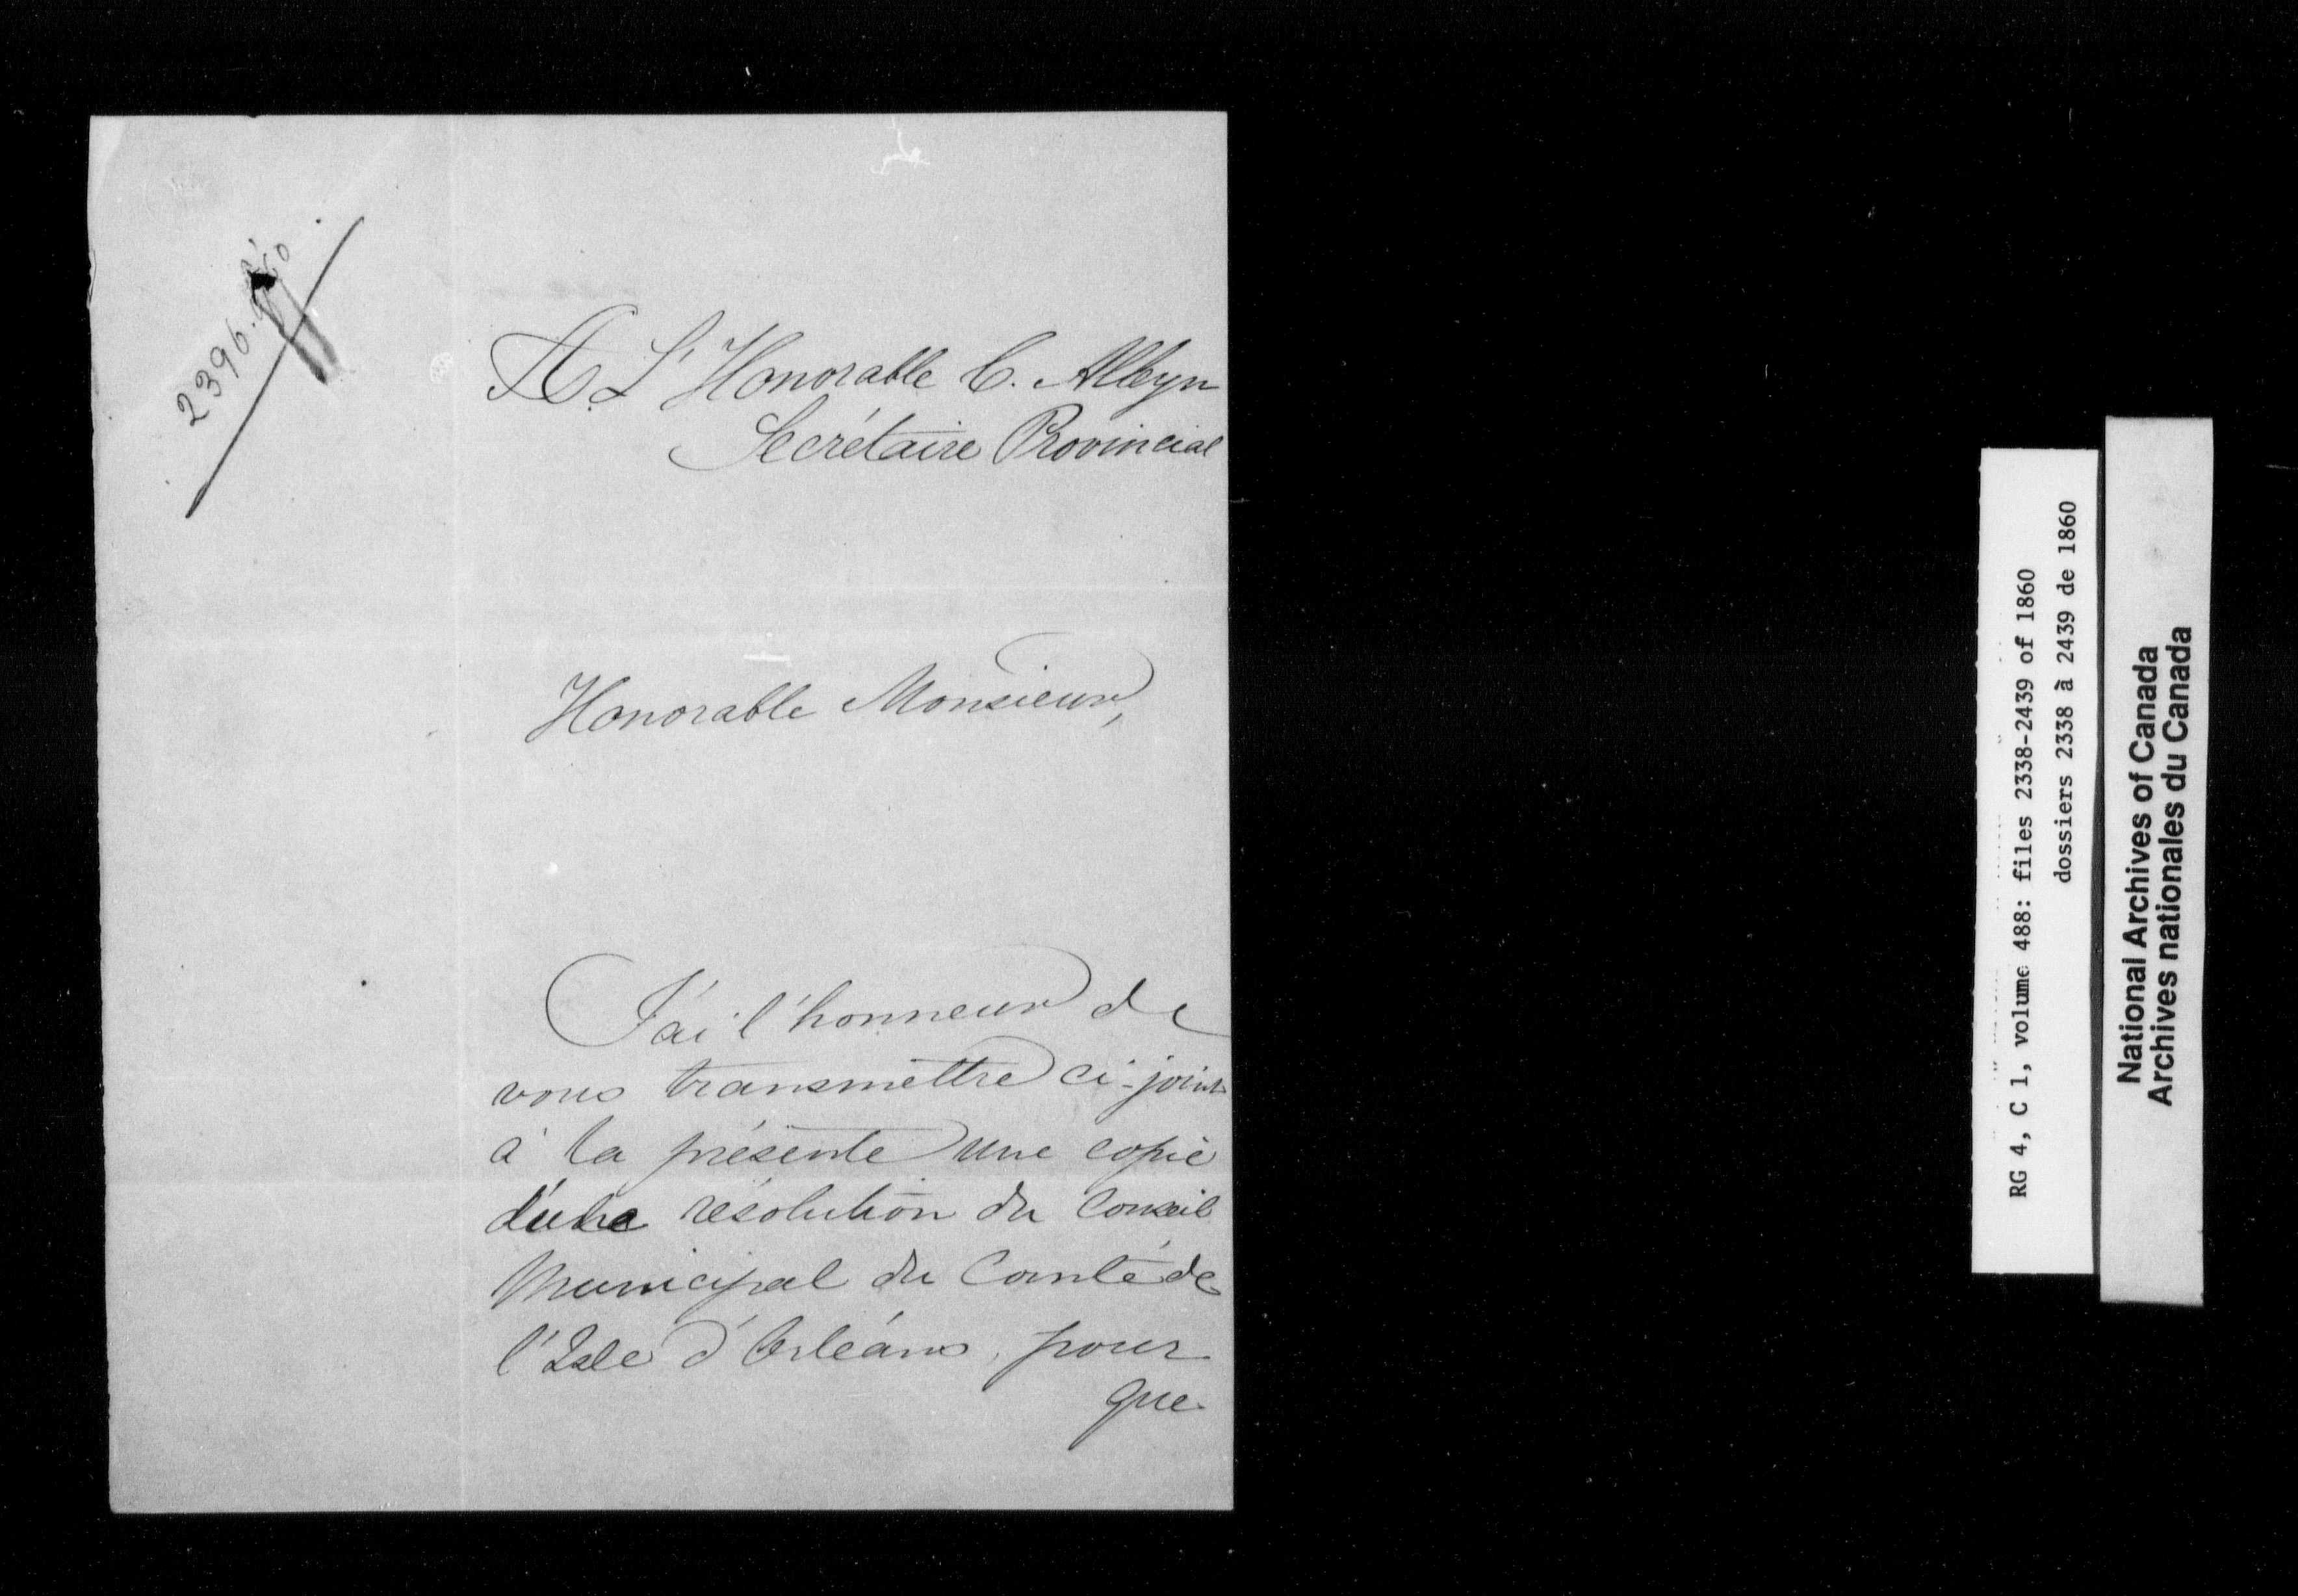 2396.
A L'Honorable C. Alleyn
Secrétaire Provincial
Honorable Monsieur,
J'ai l'honneur de
vous transmettre ci-joint
à la présente une copie
d'une résolution du Conseil
Municipal du Comté de
l'Isle d'Orléans, pour
que
RG 4, C 1, volume 488: files 2338-2439 of 1860
dossiers 2338 à 2439 de 1860
National Archives of Canada
Archives nationales du Canada